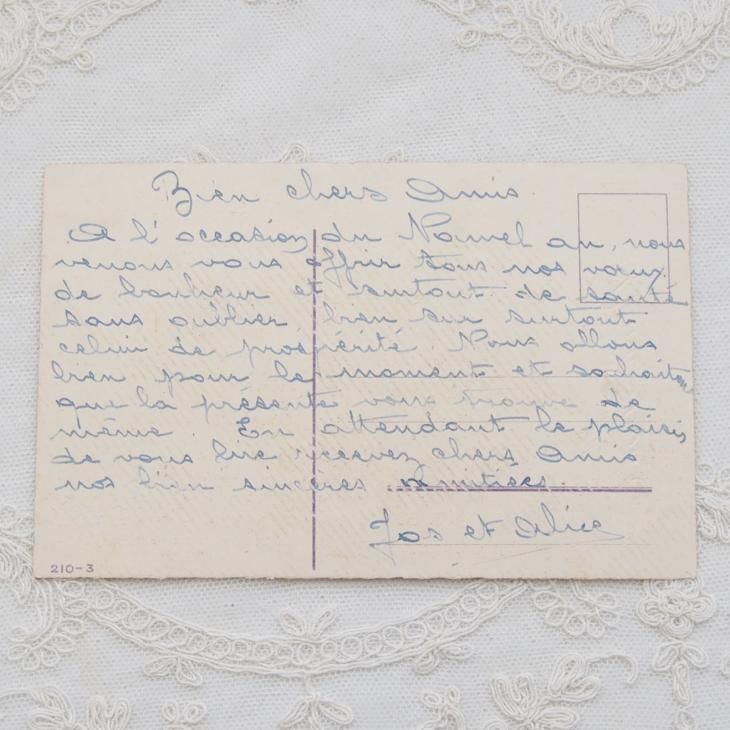 Bien chers Amis
A l'occasion du Nouvel an, nous
venons vous offrir tous nos voeux
de bonheur et surtout de santé
sans oublier bien sur surtout
celui de prospérité. Nous allons
bien pour le moment et souhaitons
que la présente vous trouve de
même. En attendant le plaisir
de vous lire recevez chers Amis
nos bien sincères amitiées.
Jos et Alice
210-3